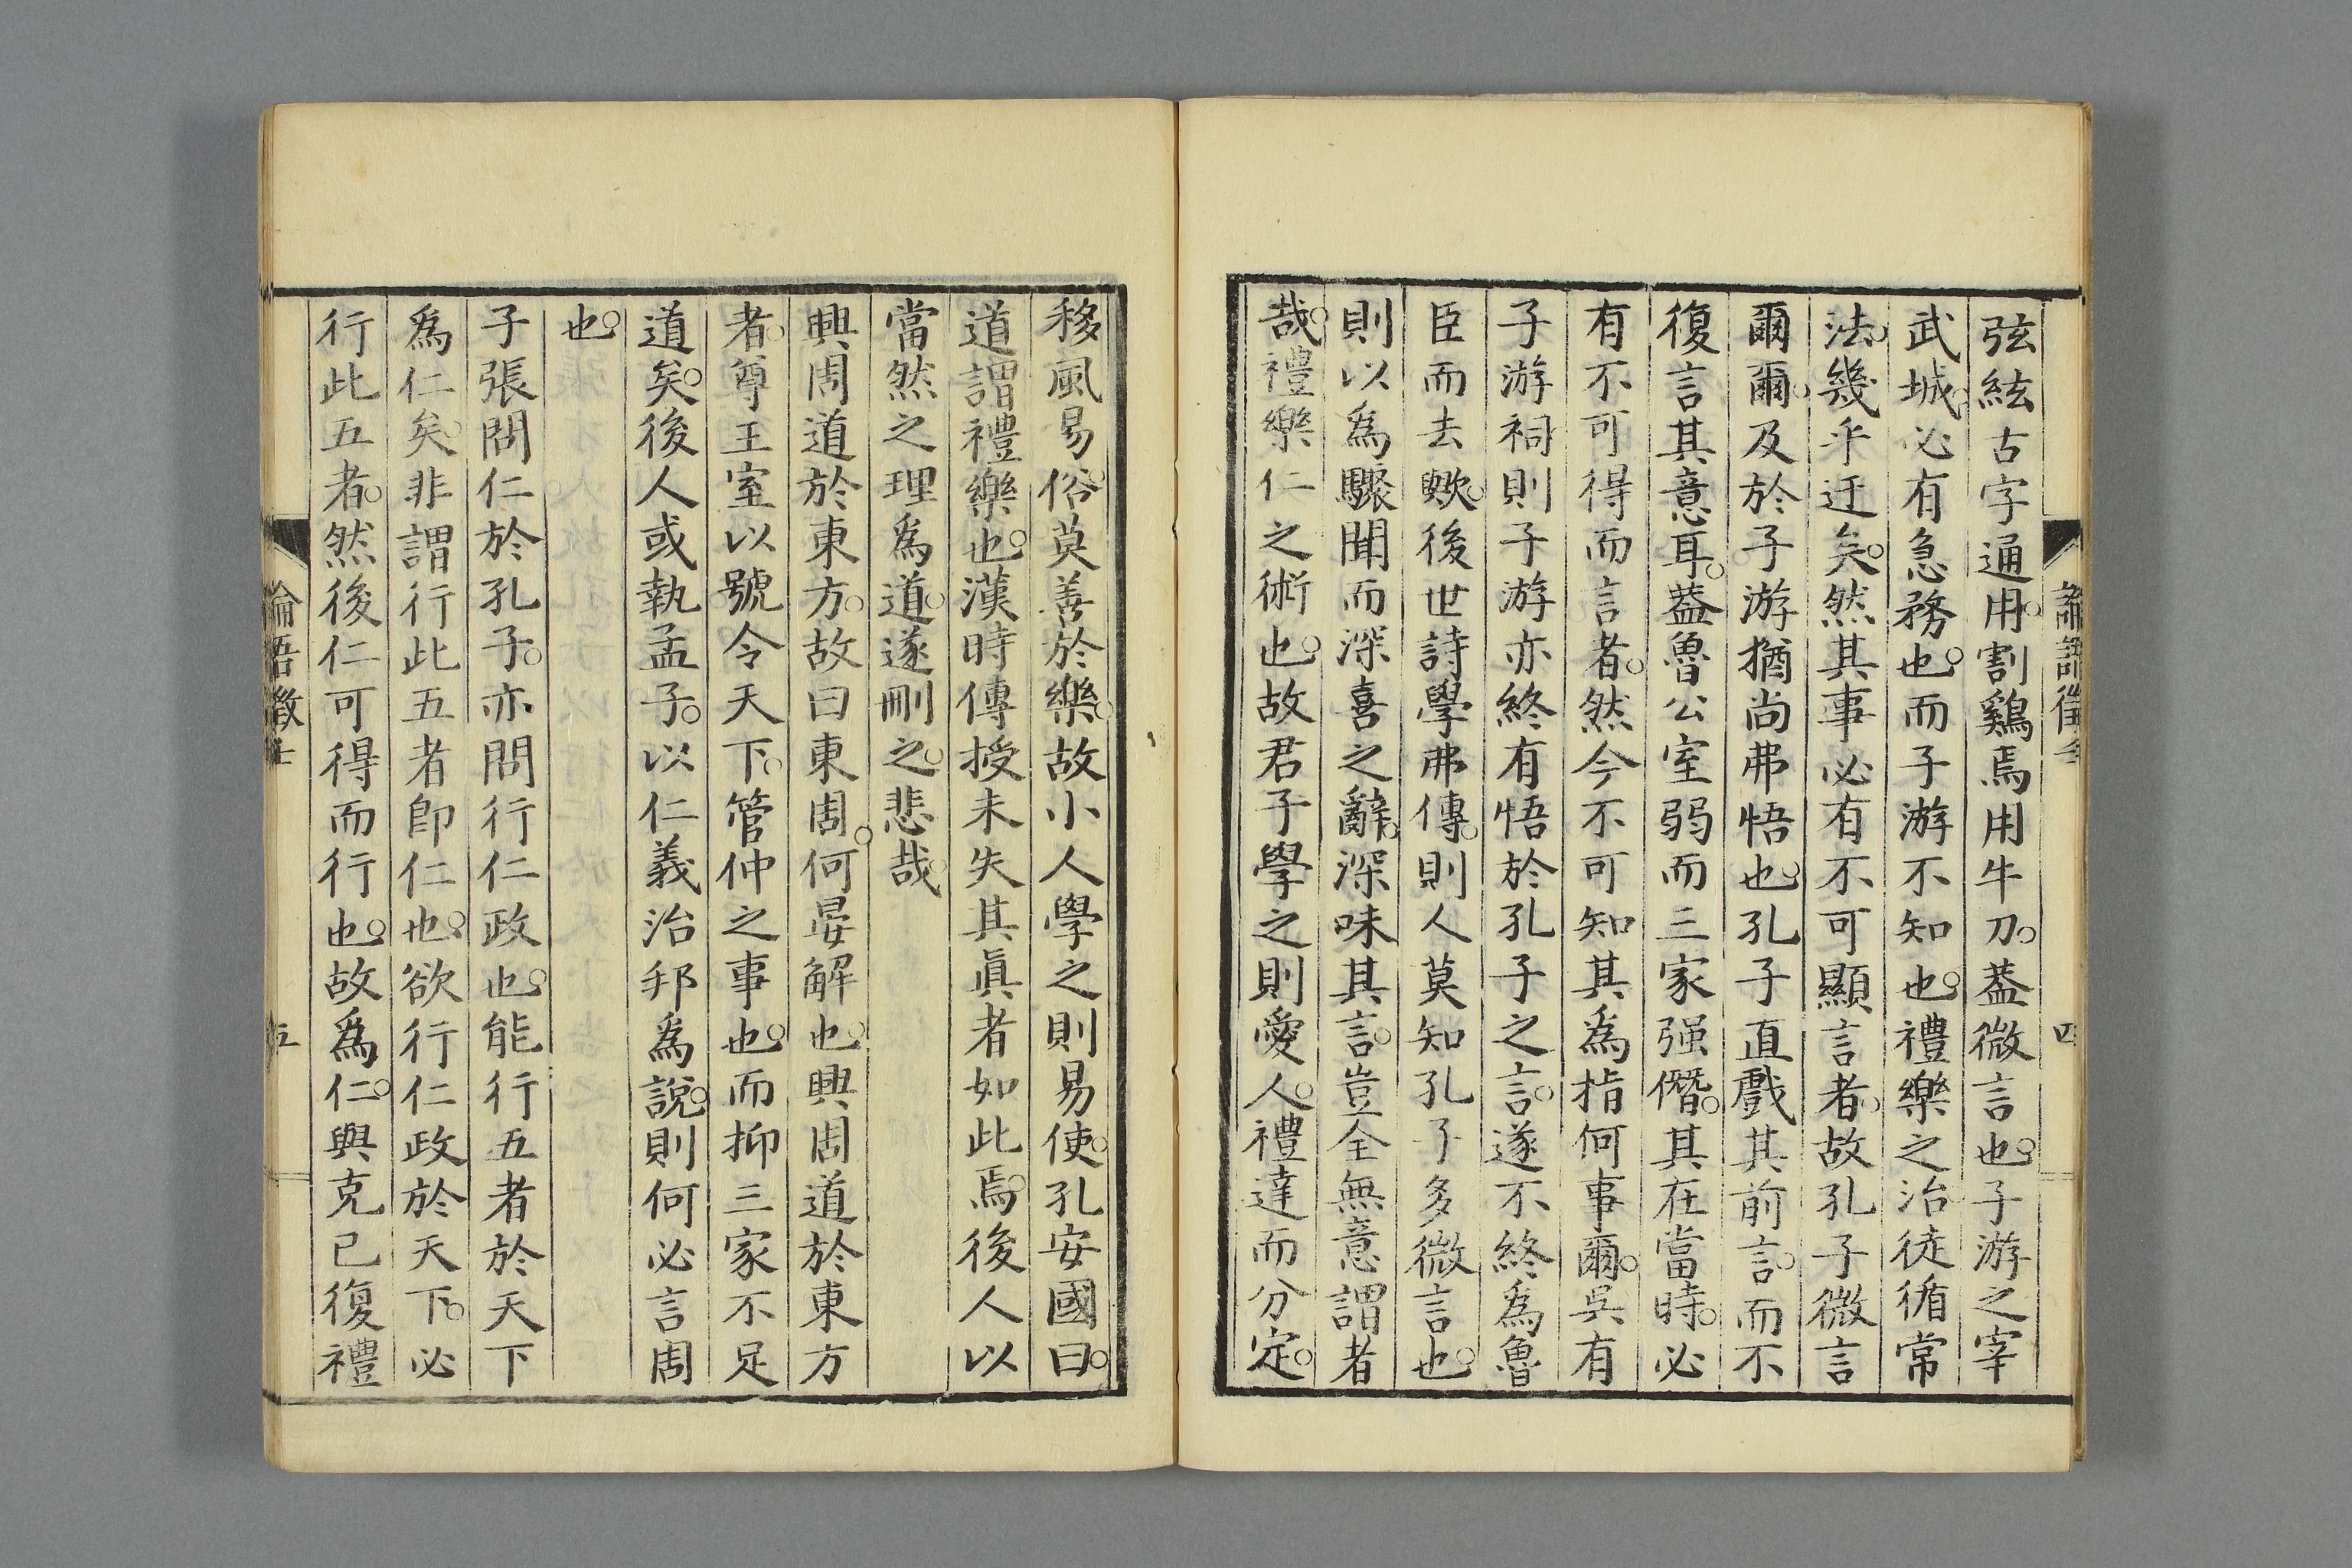 弦絃古字通用。割鷄焉用牛刀。葢微言也。子游之宰
武城。必有急務也。而子游不知也。禮樂之治徒循常
法。幾乎迂矣。然其事必有不可顯言者。故孔子微言
爾爾。及於子游猶尚弗悟也。孔子直戲其前言。而不
復言其意耳。葢魯公室弱而三家强僭。其在當時。必
有不可得而言者。然今不可知其為指何事爾。吳有
子游祠則子游亦終有悟於孔子之言。遂不終為魯
臣而去歟。後世詩學弗傳。則人莫知孔子多微言也。
則以為驟聞而深喜之辭。深味其言。豈全無意謂者
哉。禮樂仁之術也。故君子學之則愛人。禮達而分定。
移風易俗。莫善於樂。故小人學之則易使。孔安國曰。
道謂禮樂也。漢時傳授未失其眞者如此焉。後人以
當然之理為道。遂刪之。悲哉。
興周道於東方。故曰東周。何晏解也。興周道於東方
者。尊王室以號令天下。管仲之事也。而抑三家不足
道矣。後人或執孟子。以仁義治邦為說。則何必言周
也。
子張問仁於孔子。亦問行仁政也。能行五者於天下
為仁矣。非謂行此五者卽仁也。欲行仁政於天下。必
行此五者。然後仁可得而行也。故為仁。與克己復禮
論語徵
四
論語徵
五